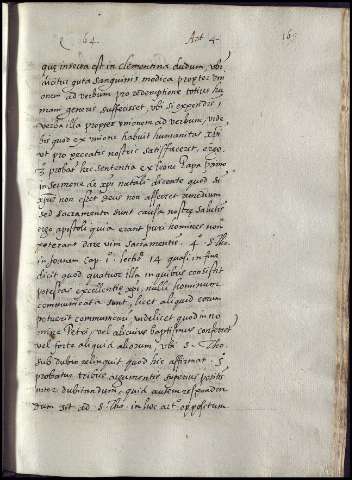 q 64 Art 4 165
que inserta est in clementina dudum, vbi
dicitur guta sanguinis modica propter vni
onem ad verbum pro redemptione totius hu
mani generis suffecisset, vbi si expendis,
verba illa propter vnionem ad verbum, vide
bis quod ex vnione habuit humanitas xpi
vt pro peccatis nostris satisfaceret, ergo
3 probat hec sententia ex leone Papa
in sermone de xpi natali dicente quod si
xpus non esset deus non afferret remedium
sed sacramenta sunt causa nostre salutis
ergo apostoli quia erant puri homines non
poterant dare vim sacramentis. 4º S. Tho.
in Joanem cap. 1º. lecto. 14 quasi in fine
dicit quod quatuor illa in quibus consistit
potestas excellentie xpi, nulli homini
communicata sunt, licet aliquid eorum
potuerit communicari, videlicet quod in no
mine Petri, vel alicuius baptismus conferret
vel forte aliquid aliorum, vbi S. Tho.
sub dubio relinquit quod hic affirmat. 5
probatur tribus argumentis superius positis
inter dubitandum, quid autem respondendum
sit ad S. Tho. in hoc art. oppositum